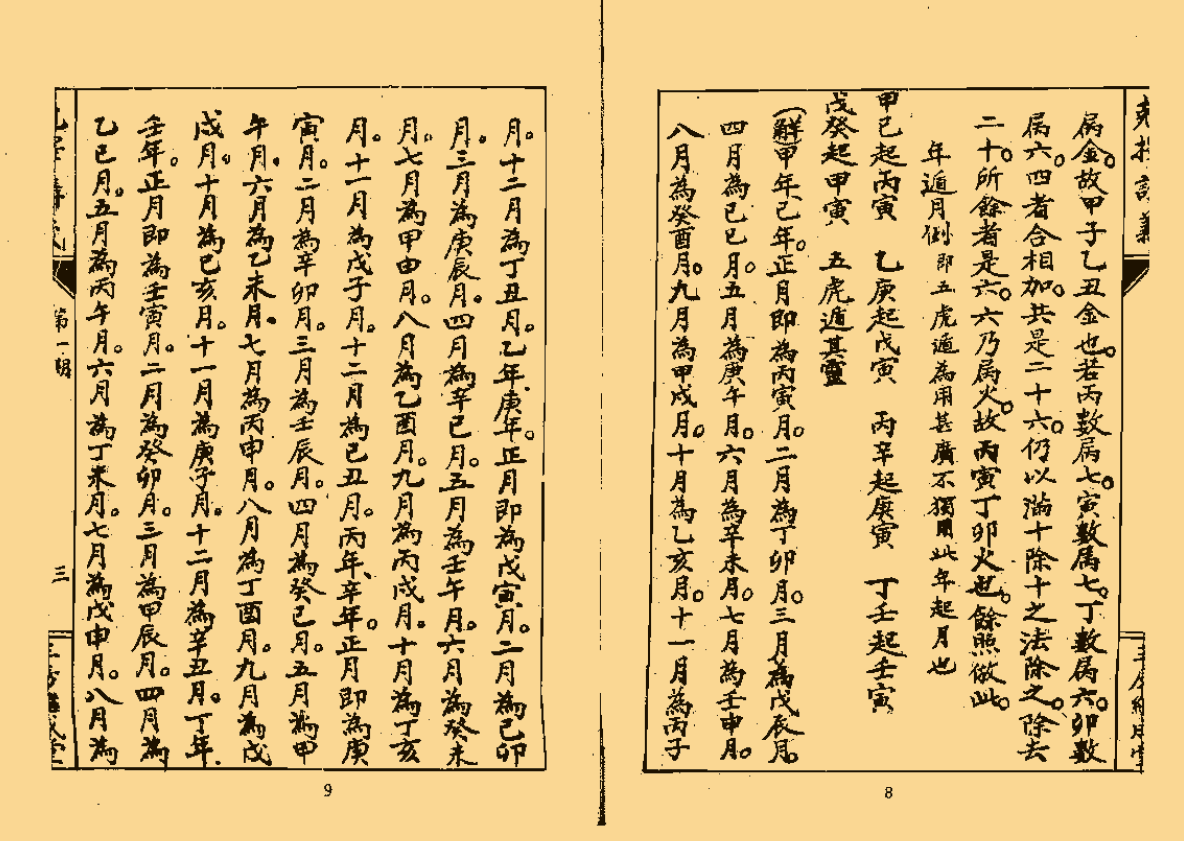 屬金。故甲子乙丑金也。若丙數屬七。寅數屬七。丁數屬六。卯數
屬六。四者合相加。共是二十六。仍以滿十除十之法除之。除去
二十。所餘者是六。六乃屬火。故丙寅丁卯火也。餘照倣此。
年遁月例即五虎遁為用甚廣不獨用此年起月也
甲己起丙寅　乙庚起戊寅　丙辛起庚寅　丁壬起壬寅
戊癸起甲寅　五虎遁其靈
(解)甲年、己年。正月即為丙寅月。二月為丁卯月。三月為戊辰月。
四月為己巳月。五月為庚午月。六月為辛未月。七月為壬申月。
八月為癸酉月。九月為甲戌月。十月為乙亥月。十一月為丙子
8
月。十二月為丁丑月。乙年、庚年。正月即為戊寅月。二月為己卯
月。三月為庚辰月。四月為辛巳月。五月為壬午月。六月為癸未
月。七月為甲申月。八月為乙酉月。九月為丙戌月。十月為丁亥
月。十一月為戊子月。十二月為己丑月。丙年、辛年。正月即為庚
寅月。二月為辛卯月。三月為壬辰月。四月為癸巳月。五月為甲
午月。六月為乙未月。七月為丙申月。八月為丁酉月。九月為戊
戌月。十月為己亥月。十一月為庚子月。十二月為辛丑月。丁年、
壬年。正月即為壬寅月。二月為癸卯月。三月為甲辰月。四月為
乙巳月。五月為丙午月。六月為丁未月。七月為戊申月。八月為
第一期
三
9